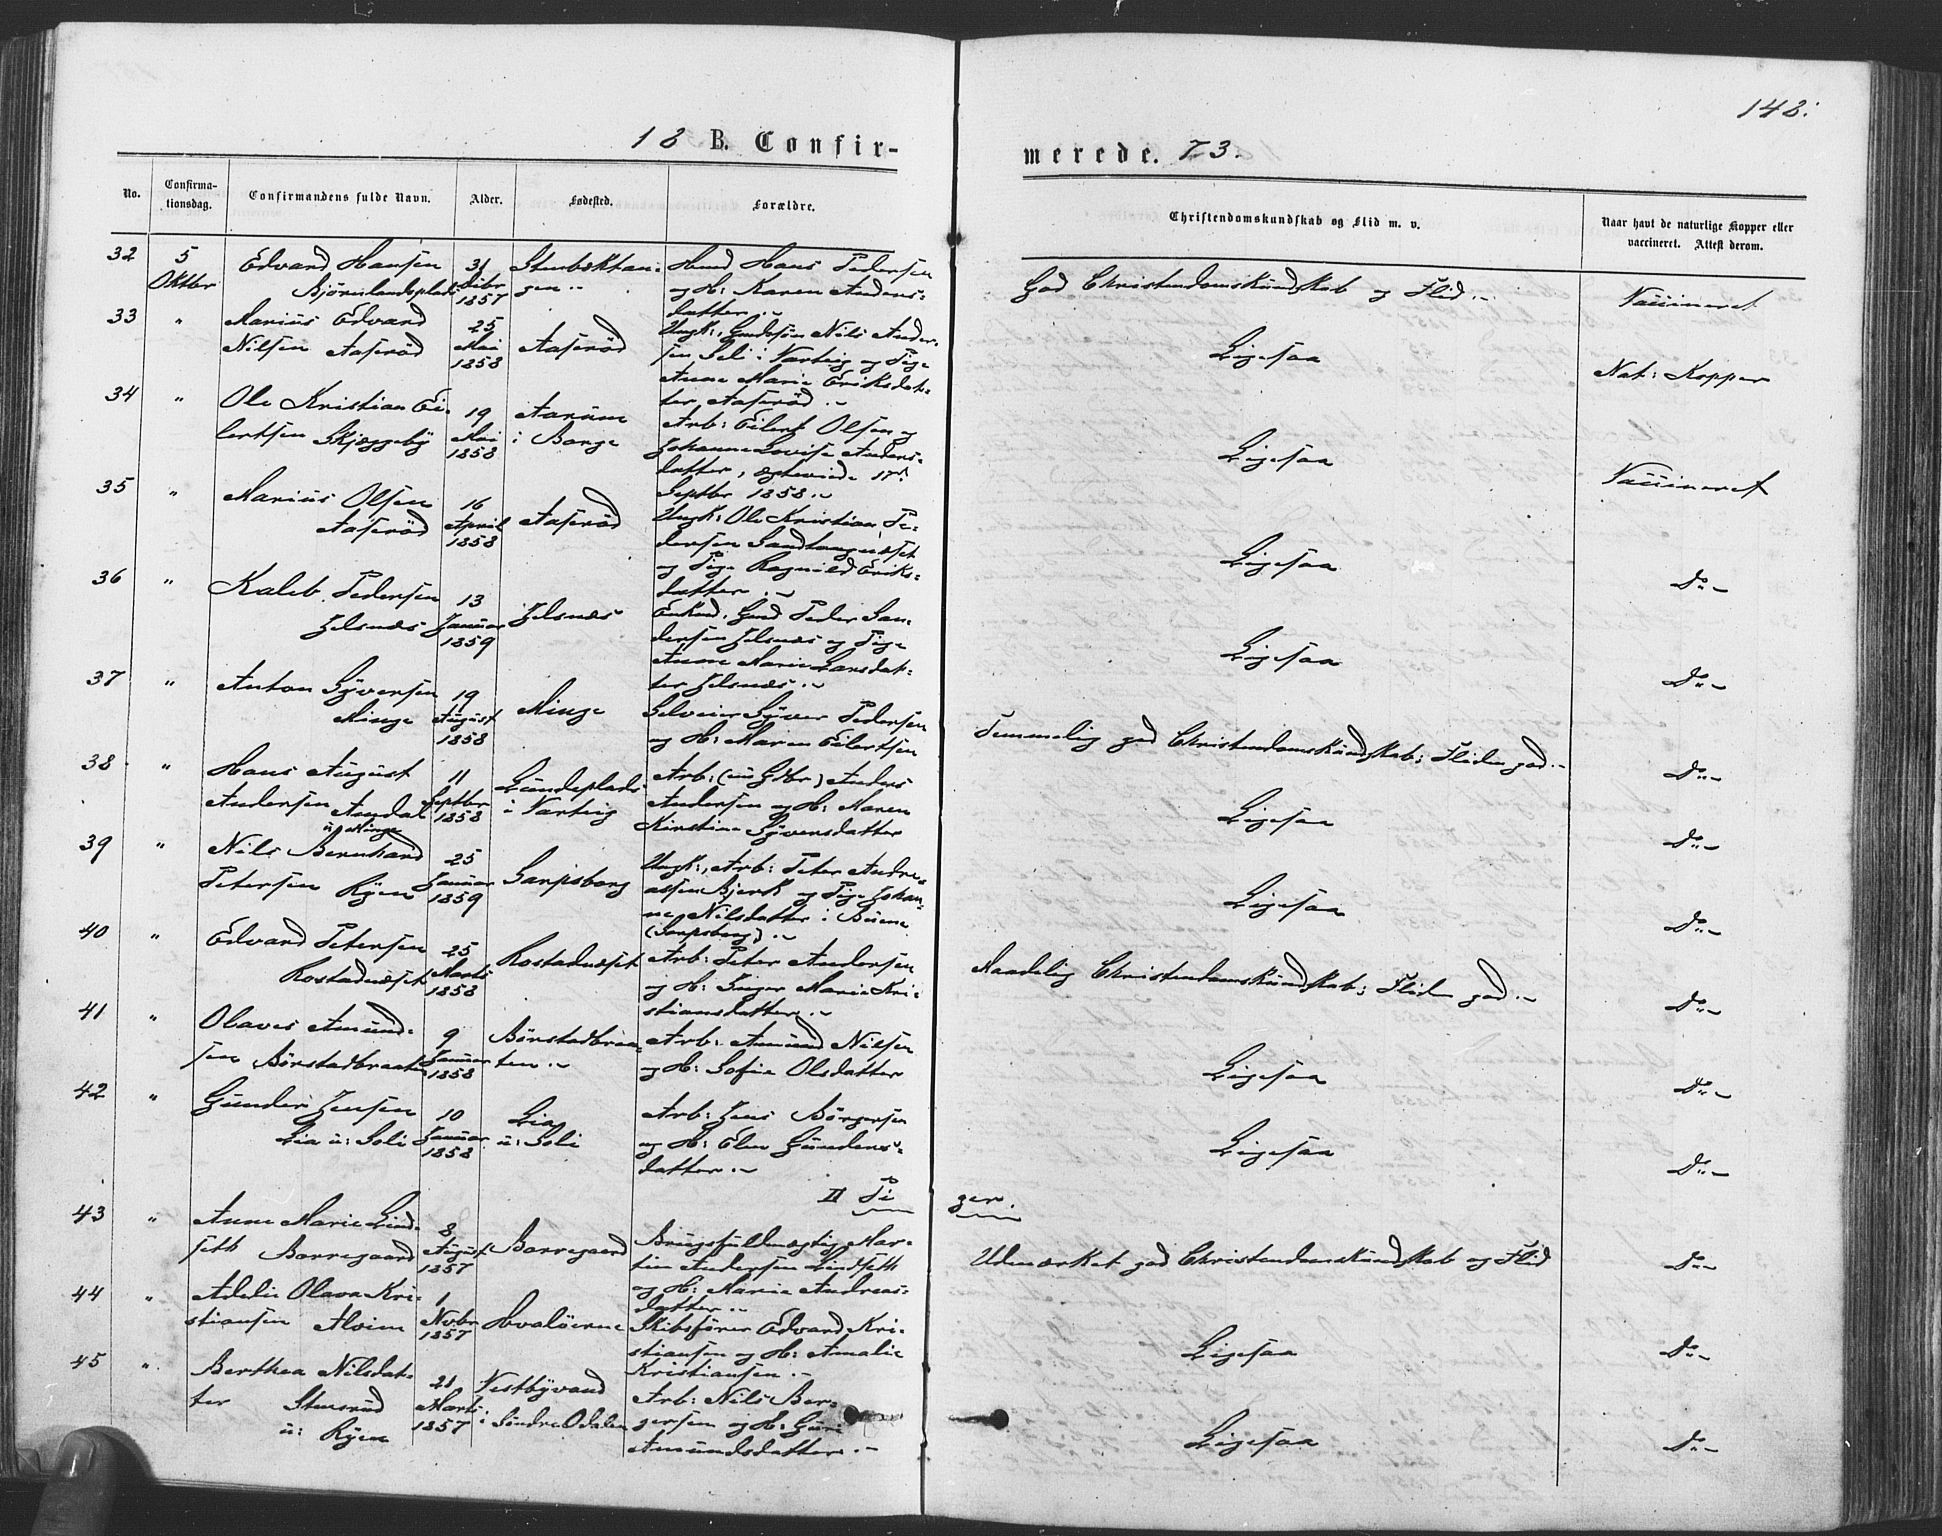 148.
18 B. Confir-
merede. 73.
No.
Confirma-
tionsdag.
Confirmandens fulde Navn.
Alder.
Fødested.
Forældre.
Christendomskundskab og Flid m. v.
Naar havt de naturlige Kopper eller
vaccineret. Attest derom.
32
5
Oktbr
Edvard Hansen
Bjørnlandsplads
31
Debr
1857
gen
Hmd Hans Pedersen
og H: Karen Anders-
datter
God Christendomskundskab og Flid
Vaccineret
33
"
Marius Edvard
Nilsen Aaserød
25
Mai
1858
Aaserød
Ungk: Gmdsøn Nils Ander-
sen Soli i Varteig og Pige
Anne Marie Eriksdat-
ter Aaserød
Ligesaa
Nat: Kopper
34
"
Ole Kristian Ei-
lertsen Skjæggeby
19
Mai
1858
Aarum
i Borge
Arb: Eilert Olsen og
Johanne Lovise Anders-
datter, ægteviede 17d
Septbr 1858
Ligesaa
Vaccineret
35
"
Marius Olsen
Aaserød
16
April
1858
Aaserød
Ungk: Ole Kristian Pe-
dersen Sandtangnæset
og Pige Ragnild Eriks-
datter
Ligesaa
Do
36
"
Kaleb Pedersen
Jelsnæs
13
Januar
1859
Jelsnæs
Enkmd. Gmd Peder San-
dersen Jelsnæs og Pige
Anne Marie Larsdat-
ter Jelsnæs
Ligesaa
Do
37
"
Anton Syversen
Minge
19
August
1858
Minge
Selveier Syver Pedersen
og H: Maren Eilertsen
Temmelig god Christendomskundskab; Fliden god
Do
38
"
Hans August
Andersen Amdal
u. Minge
11
Septbr
1858
Lundeplads
i Varteig
Arb: (nu Gbr) Anders
Andersen og H: Maren
Kirstine Syversdatter
Ligesaa
Do
39
"
Nils Bernhard
Petersen Ryen
25
Januar
1859
Sarpsborg
Ungk:, Arb: Peter Andre-
assen Bjerk og Pige Johan-
ne Nilsdatter i Buene
(Sarpsborg)
Ligesaa
Do
40
"
Edvard Petersen
Rostadnæset
25
Marts
1858
Rostadnæset
Arb: Peter Andersen
og H: Inger Marie Kri-
stiansdatter
Maadelig Christendomskundskab; Fliden god
Do
41
"
Olaves Amund-
sen Børstadbraaten
9
Januar
1858
Børstadbraa-
ten
Arb: Amund Nilsen
og H: Sofie Olsdatter
Ligesaa
Do
42
"
Gunder Jensen
Lia u: Soli
10
Januar
1858
Lia
u: Soli
Arb: Jens Børgersen
og H: Elen Gunders-
datter
Ligesaa
Do
II Pi
ger.
43
"
Anne Marie Lind-
seth Borregaard
8
August
1857
Borregaard
Brugsfuldmægtig Mar-
tin Andersen Lindseth
og H: Marie Andreas-
datter
Udmærket god Christendomskundskab og Flid
Do
44
"
Adelie Olava Kri-
stiansen Alvim
1
Novbr
1857
Hvaløerne
Skibsfører Edvard Kri-
stiansen og H: Amalie
Kristiansen
Ligesaa
Do
45
"
Berthea Nilsdat-
ter Stensrud
u: Ryen
21
Marts
1857
Vestbyvand
i Søndre Odalen
Arb: Nils Ber-
gersen og H: Guri
Amundsdatter
Ligesaa
Do